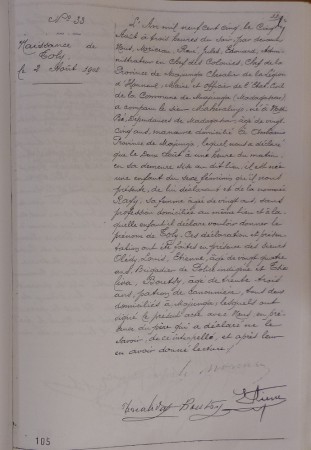 N° 33
Naissance de
Toly
le 2 Août 1905
L'An mil neuf cent cinq, le cinq
Août à trois heures du soir par devant
Nous, Mercier, Paul, Jules, Edouard, Admi-
nistrateur en Chef des Colonies, Chef de la
Province de Majunga Chevalier de la Légion
d'Honneur, Maire et officier de l'État Civil
de la Commune de Majunga (Madagascar)
a comparu le sieur né à Nossi
Bé, Dépendances de Madagascar, âgé de vingt
cinq ans, manœuvre domicilié à
Province de Majunga, lequel nous a déclaré
que le deux Août à heure du matin
en sa demeure sise au dit lieu, il est né
une enfant du sexe féminin qu'il nous
présente, de lui déclarant et de la nommée
sa femme âgée de vingt ans, sans
profession domiciliée au même lieu et à la-
quelle enfant il déclare vouloir donner le
prénom de Toly. Ces déclaration et présen-
tation ont été faites en présence des sieurs
Louis, Etienne, âgé de vingt quatre
ans, Brigadier de Police indigène et
Boutsy, âgé de trente trois
ans, tous deux
domiciliés à Majunga; lesquels ont
signé le présent acte avec Nous, en pré-
sence du père qui a déclaré ne le
savoir, de ce interpellé, et après leur
en avoir donné lecture.
Boutsy
105